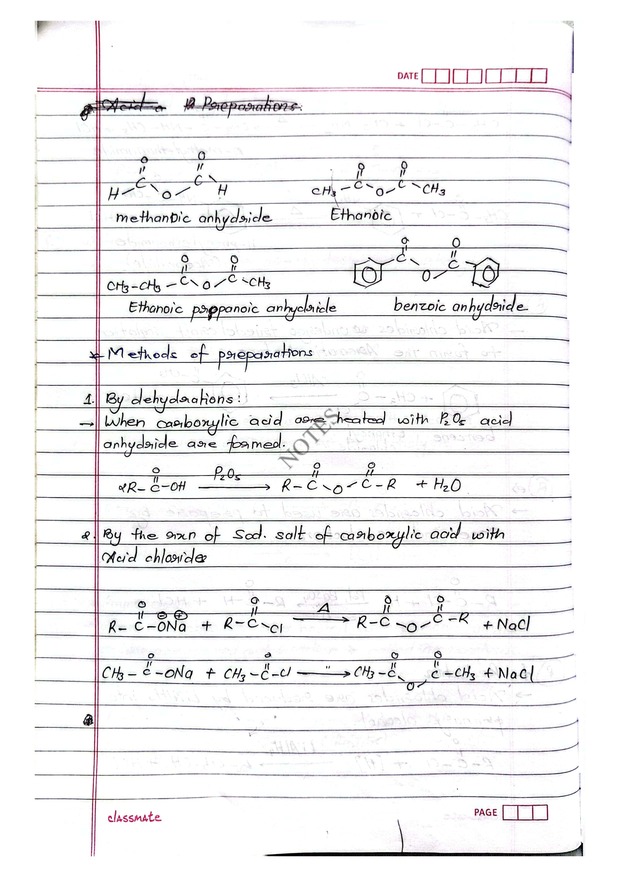 DATE
Acid Preparations
O O
H C O C H
O O
CH3 - C O C CH3
methanoic anhydride Ethanoic
O O
CH3-CH2 C O C CH3
O O
C O C
Ethanoic propanoic anhydride benzoic anhydride
* Methods of preparations
1. By dehydrations:
→ When carboxylic acid are heated with P2O5 acid
anhydride are formed.
NOTES
2R-C(=O)-OH —P2O5→ R-C(=O)-O-C(=O)-R + H2O
2. By the rxn of Sod. salt of carboxylic acid with
Acid chloride
R-C(=O)-O⊖Na⊕ + R-C(=O)-Cl —Δ→ R-C(=O)-O-C(=O)-R + NaCl
CH3-C(=O)-ONa + CH3-C(=O)-Cl —"→ CH3-C(=O)-O-C(=O)-CH3 + NaCl
classmate
PAGE